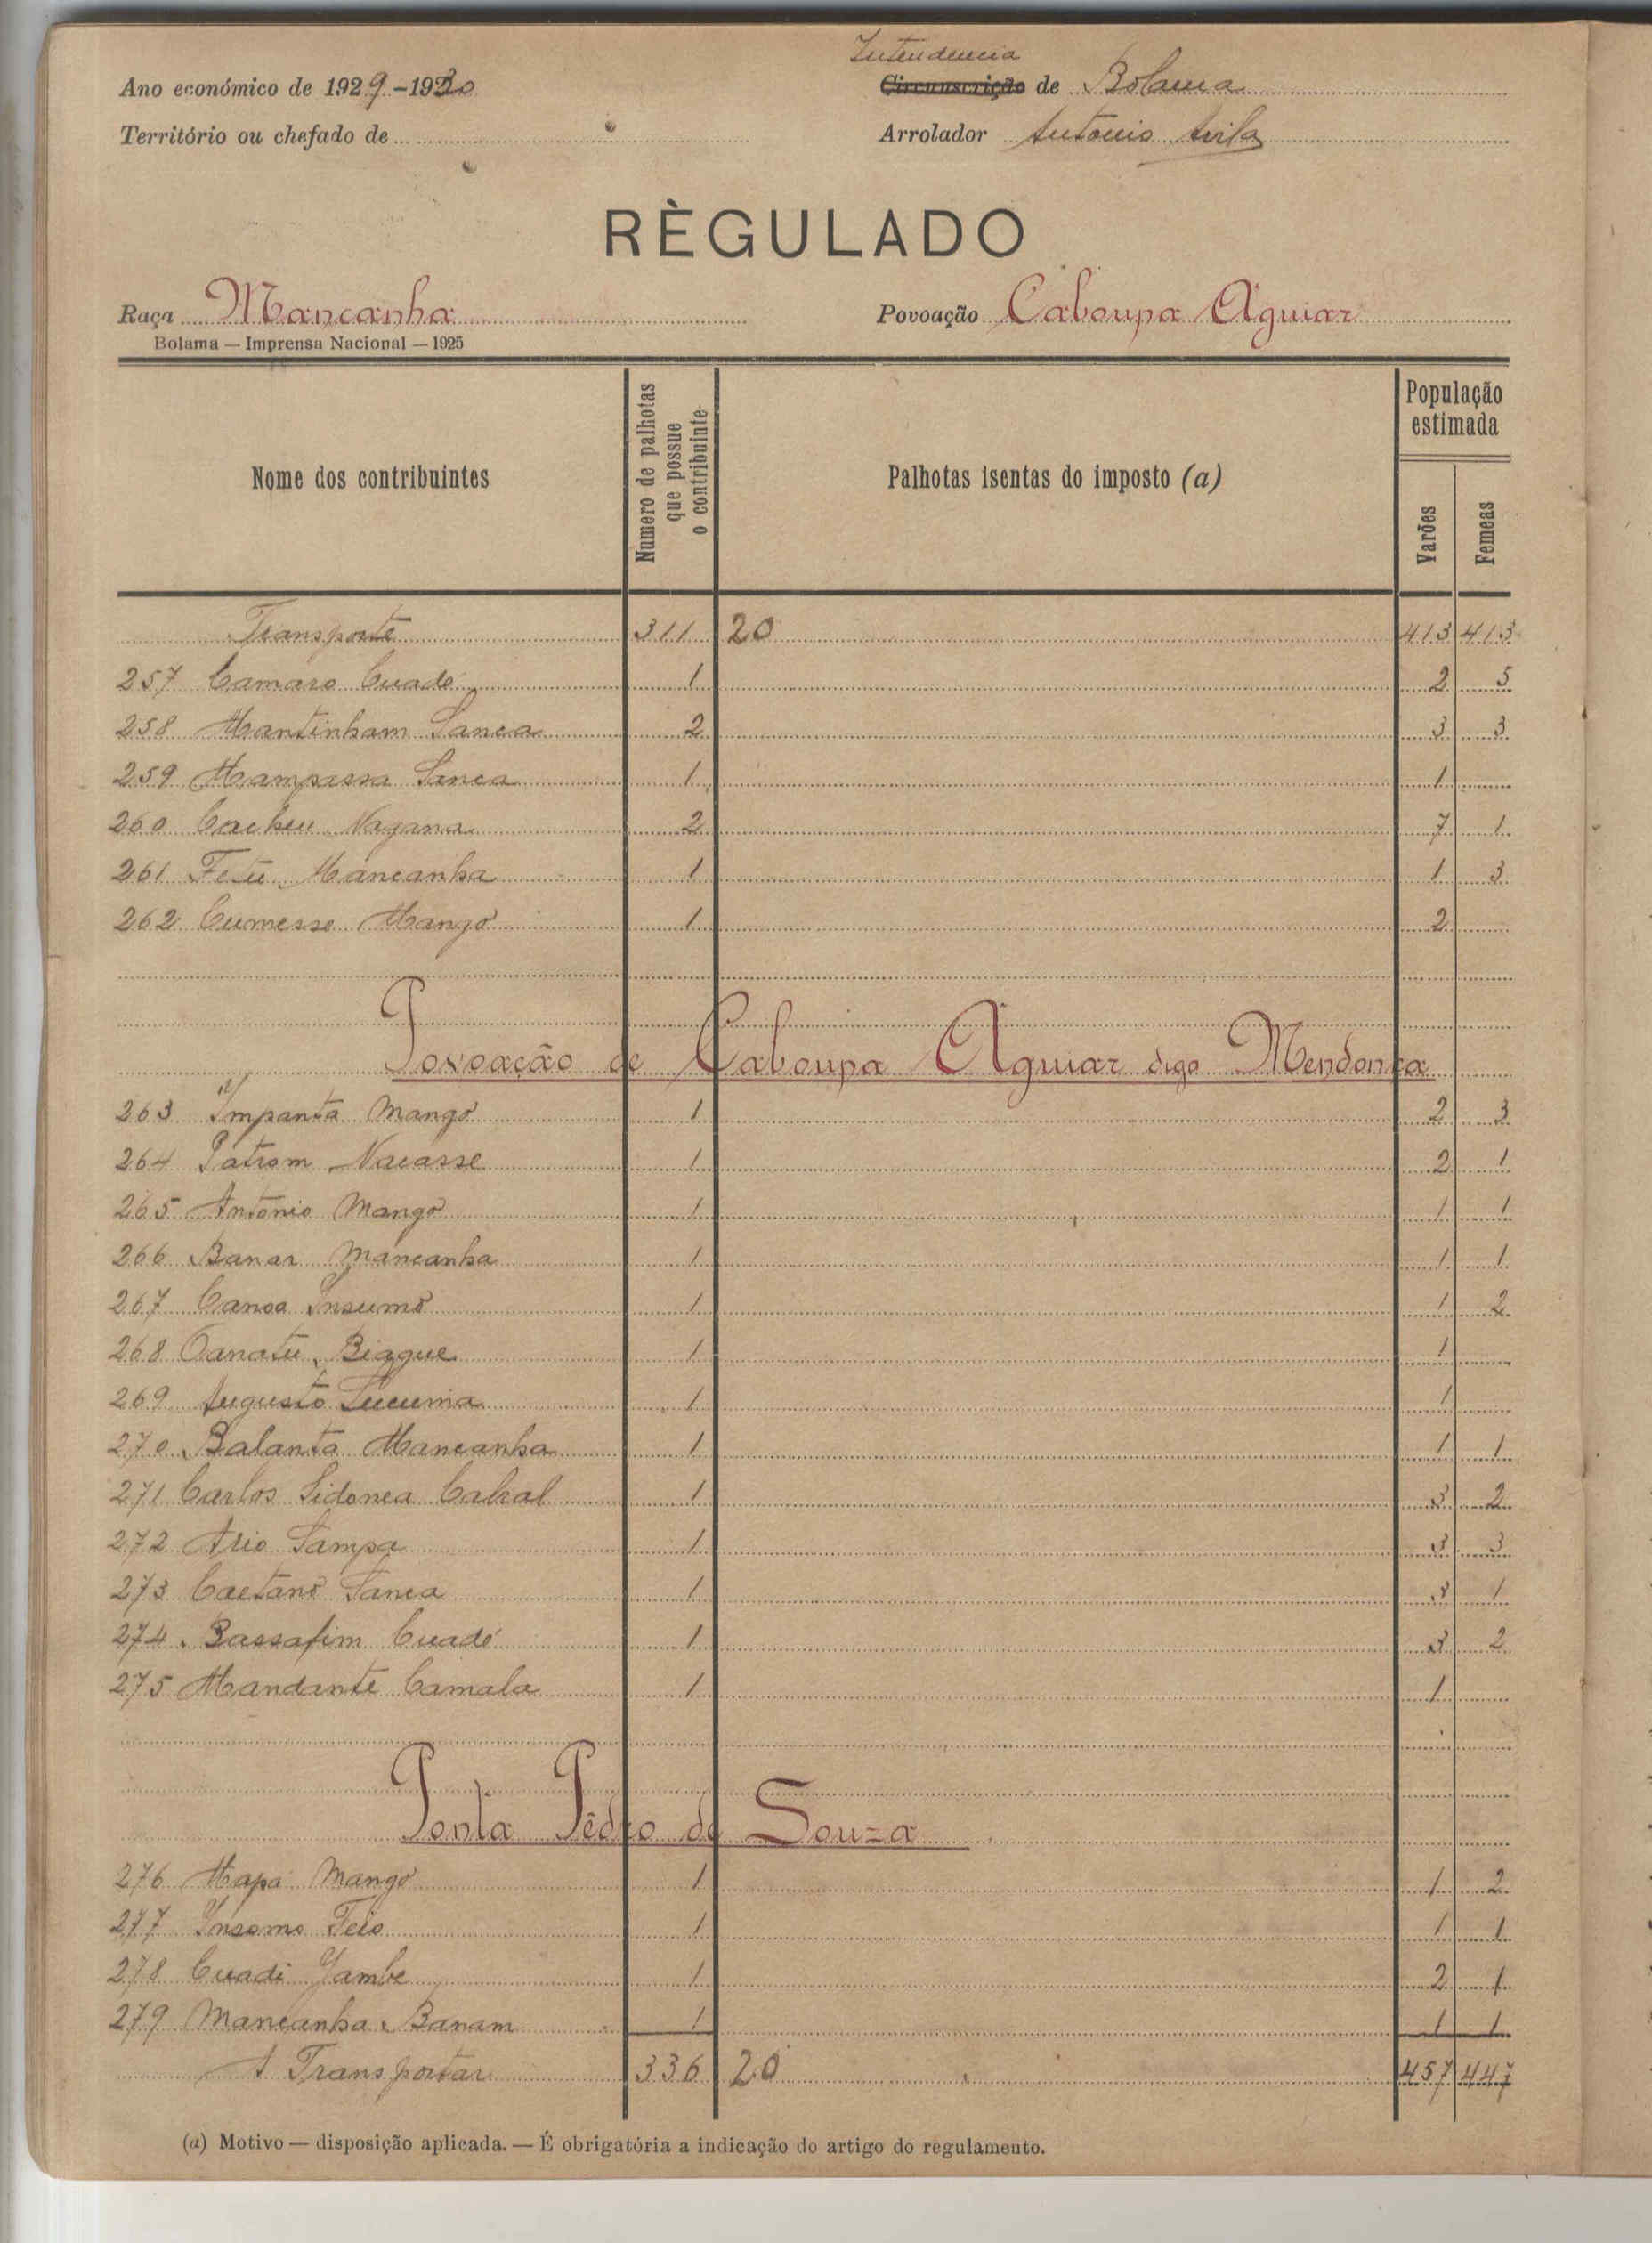 Intendencia
Ano económico de 1929-1930 Circunscrição de Bolama
Território ou chefado de Arrolador Antonio Avila
RÈGULADO
Raça Mancanha Povoação Caboupa Aguiar
Bolama — Imprensa Nacional — 1925
Nome dos contribuintes Numero de palhotas que possue o contribuinte Palhotas isentas do imposto (a) População estimada Varões Femeas
Transporte 311 20 413 413
257 Camaro Cuadé 1 2 5
258 Mantinham Sanca 2 3 3
259 Mampassa Sanca 1 1
260 Cacheu Nagana 2 7 1
261 Fetu Mancanha 1 1 3
262 Cumesse Mango 1 2
Povoação de Caboupa Aguiar digo Mendonça
263 Impanta Mango 1 2 3
264 Patrom Nacasse 1 2 1
265 Antonio Mango 1 1 1
266 Banar Mancanha 1 1 1
267 Canoa Insumo 1 1 2
268 Canatu Biague 1 1
269 Augusto Lucuma 1 1
270 Balanta Mancanha 1 1 1
271 Carlos Sidonea Cabral 1 3 2
272 Atio Sampa 1 3 3
273 Caetano Sanca 1 3 1
274 Bassafim Cuadé 1 3 2
275 Mandante Camala 1 1
Ponta Pedro de Souza
276 Mapa Mango 1 1 2
277 Insomo Feio 1 1 1
278 Cuadi Jambe 1 2 1
279 Mancanha Banam 1 1 1
A Transportar 336 20 457 447
(a) Motivo — disposição aplicada. — É obrigatória a indicação do artigo do regulamento.